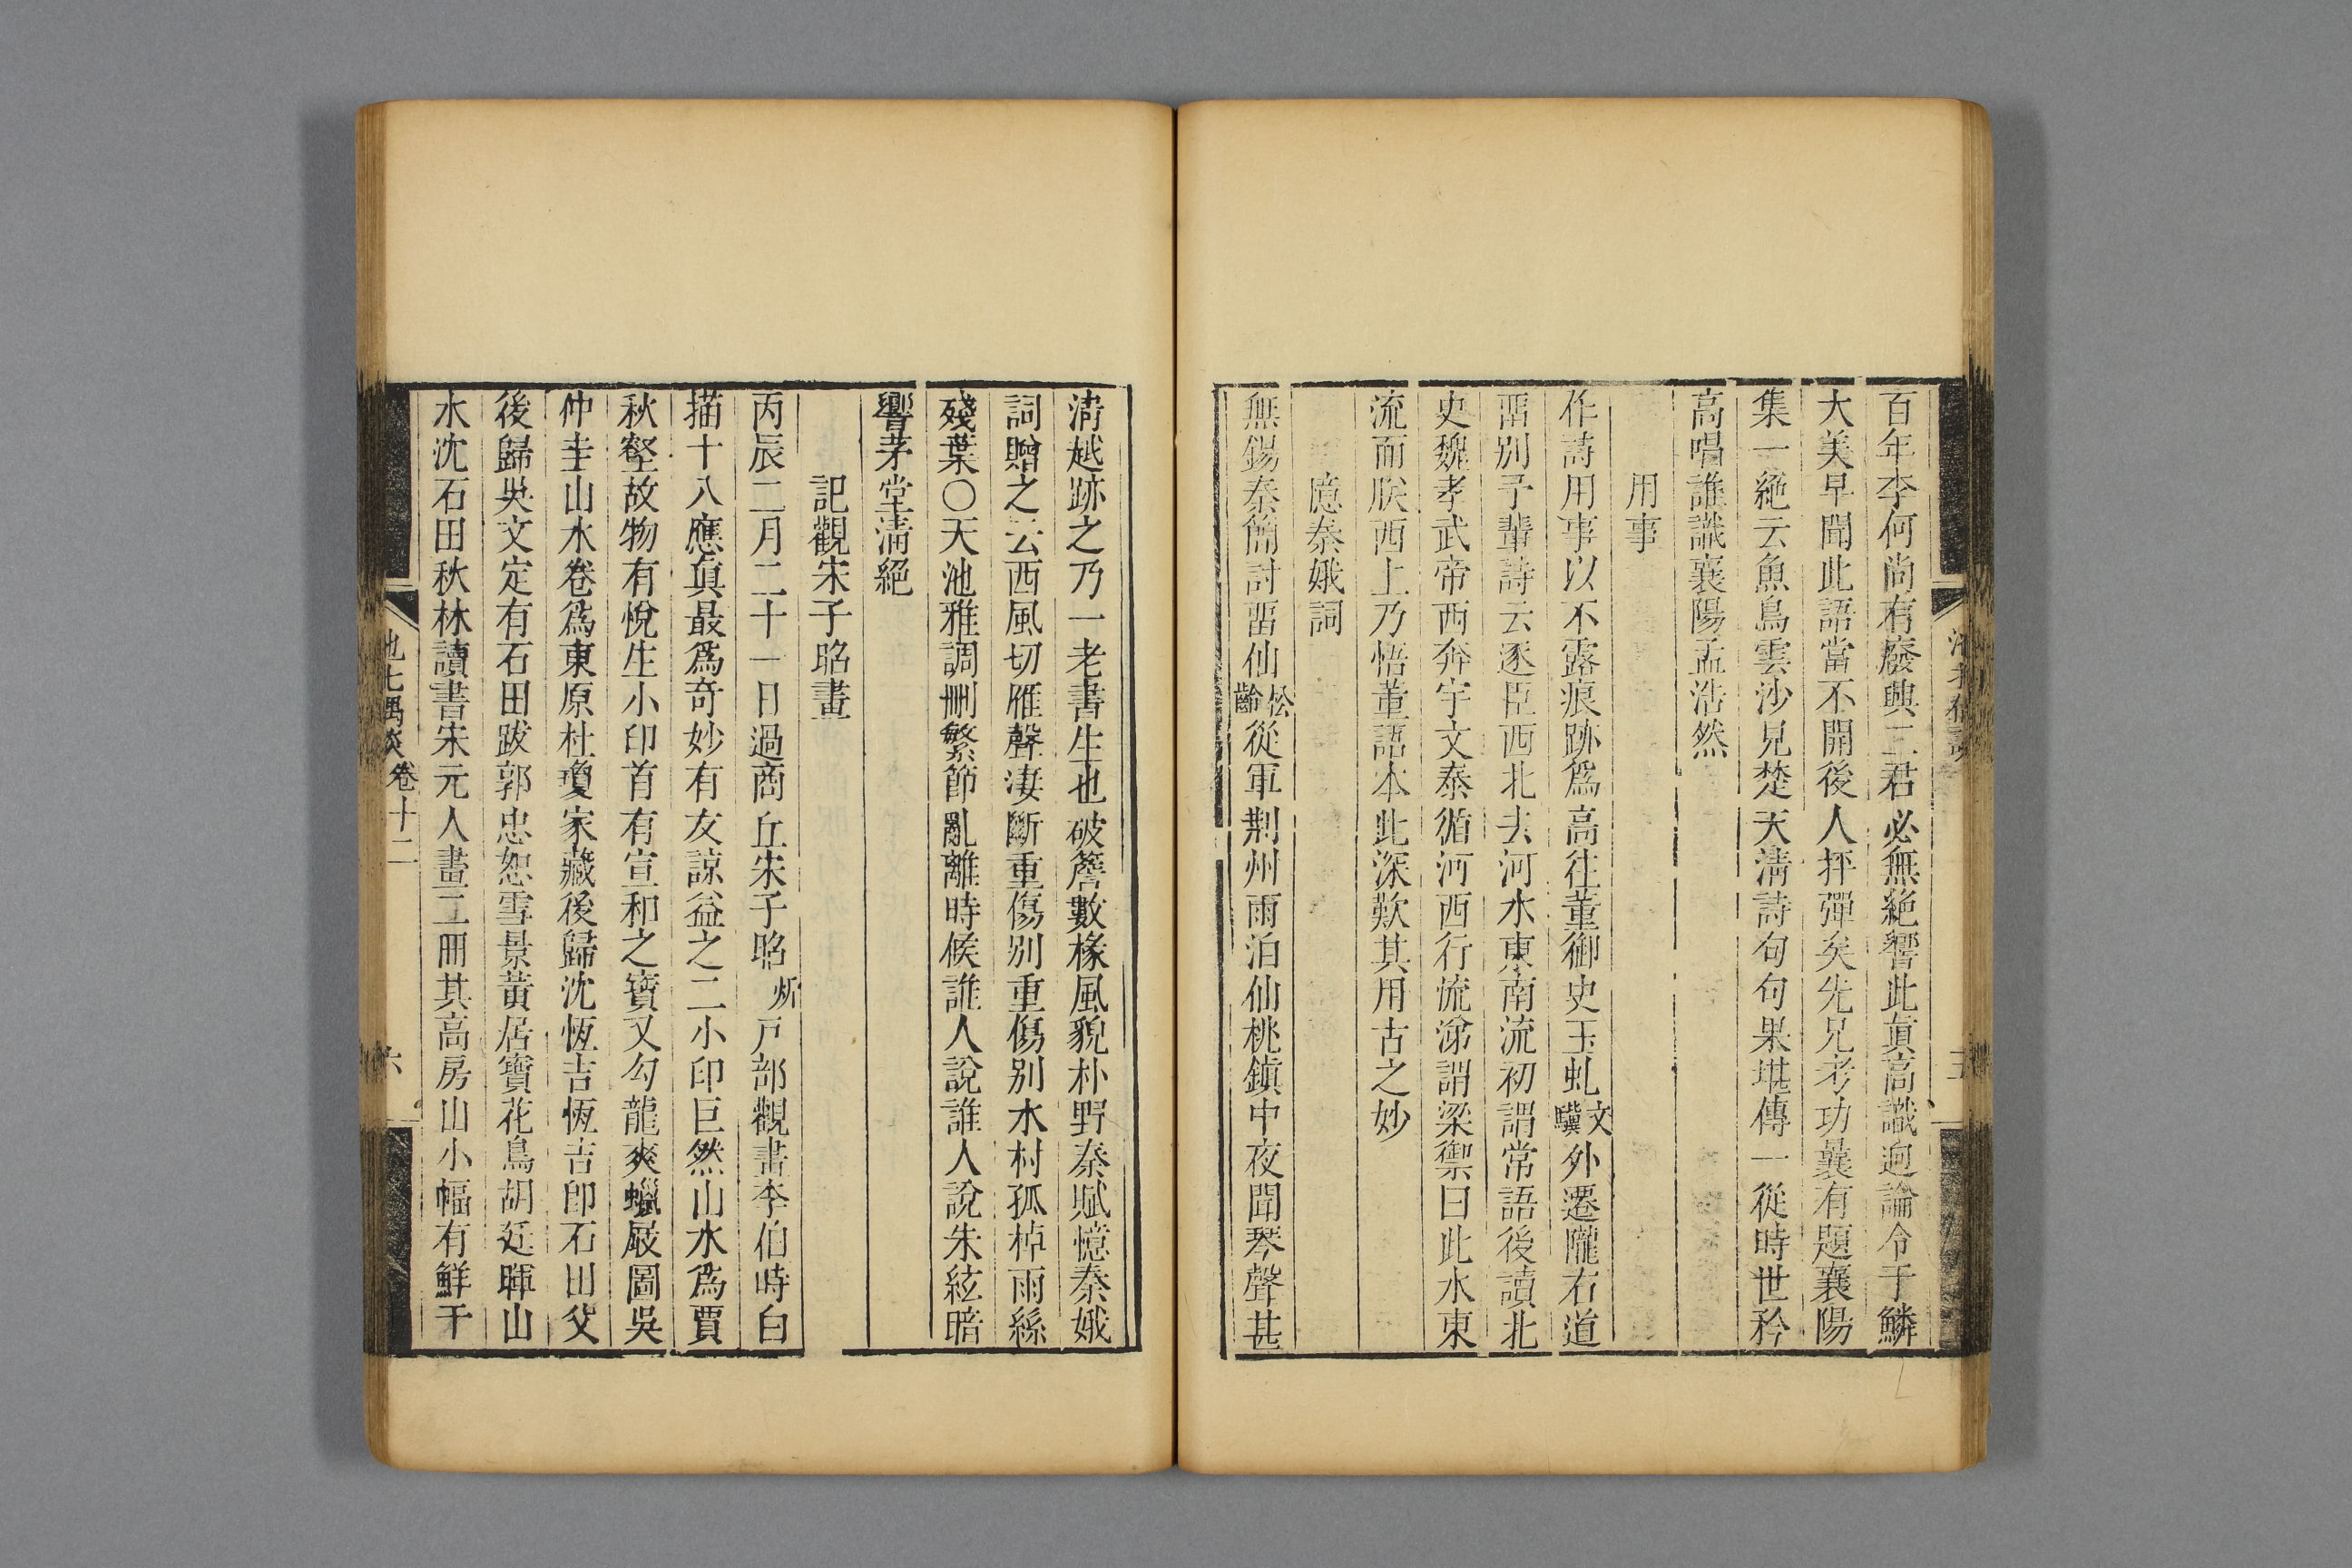 百年李何尚有廢興二君必無絕響此眞高識迥論令于鱗
大美早聞此語當不開後人抨彈矣先兄考功曩有題襄陽
集一絕云魚鳥雲沙見楚天淸詩句句果堪傳一從時世矜
高唱誰識襄陽孟浩然
用事
作詩用事以不露痕跡爲高往董御史玉虬文驥外遷隴右道
畱別予輩詩云逐臣西北去河水東南流初謂常語後讀北
史魏孝武帝西奔宇文泰循河西行流涕謂梁禦曰此水東
流而朕西上乃悟董語本此深歎其用古之妙
憶秦娥詞
無錫秦簡討畱仙松齡從軍荆州雨泊仙桃鎭中夜聞琴聲甚
淸越跡之乃一老書生也破簷數椽風貌朴野秦賦憶秦娥
詞贈之云西風切雁聲淒斷重傷别重傷别水村孤棹雨絲
殘葉〇天池雅調刪繁節亂離時候誰人說誰人說朱絃暗
響茅堂淸絕
記觀宋子昭畫
丙辰二月二十一日過商丘宋子昭炘戶部觀畫李伯時白
描十八應眞最爲奇妙有友諒益之二小印巨然山水爲賈
秋壑故物有悅生小印首有宣和之寶又勾龍爽蠟屐圖吳
仲圭山水卷爲東原杜瓊家藏後歸沈恆吉恆吉卽石田父
後歸吳文定有石田跋郭忠恕雪景黃居寶花鳥胡廷暉山
水沈石田秋林讀書宋元人畫二冊其高房山小幅有鮮于
池北偶談 卷十二
六